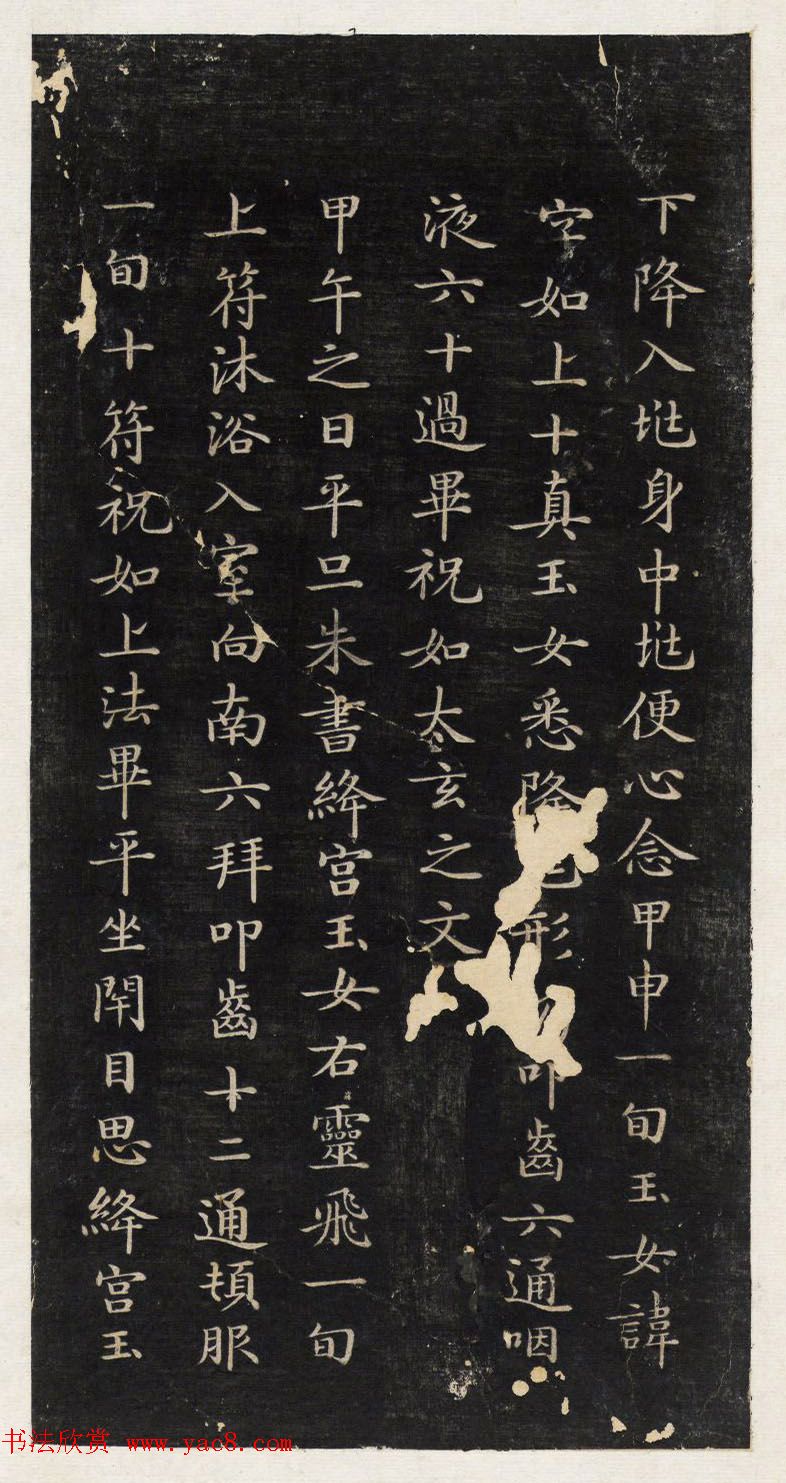 下降入𡌛身中𡌛便心念甲申一旬玉女諱
字如上十真玉女悉降形叩齒六通咽
液六十過畢祝如太玄之文
甲午之日平旦朱書絳宮玉女右靈飛一旬
上符沐浴入室向南六拜叩齒十二通頓服
一旬十符祝如上法畢平坐閇目思絳宮玉
书法欣赏 www.yac8.com